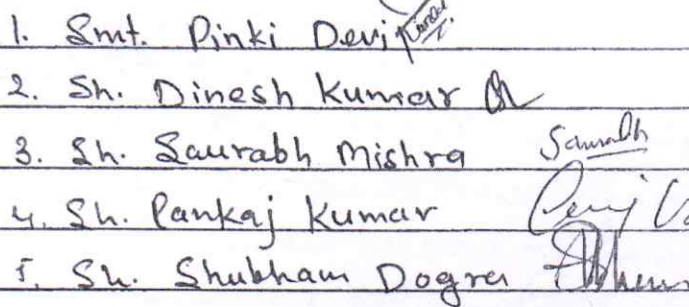 1. Smt. Pinki Devi
2. Sh. Dinesh Kumar
3. Sh. Saurabh Mishra Saurabh
4. Sh. Pankaj Kumar
5. Sh. Shubham Dogra